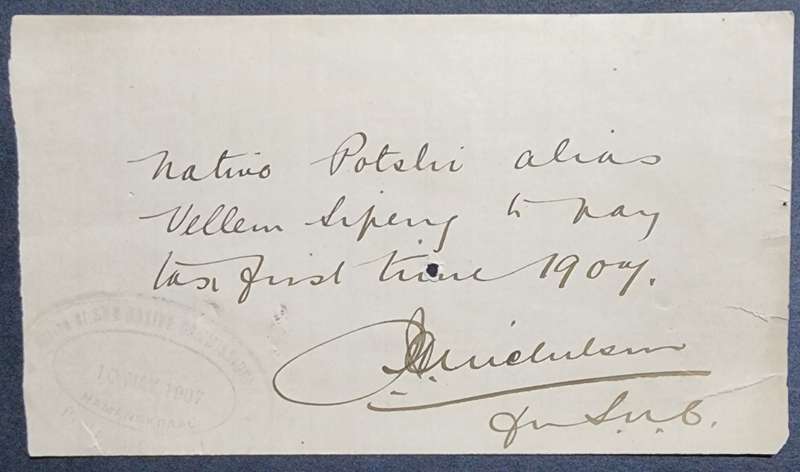 Native Potshi alias
Vellem Sipeng to pay
tax first time 1907.
Nicholson
for S.N.C.
1907
HAMANSKRAAL